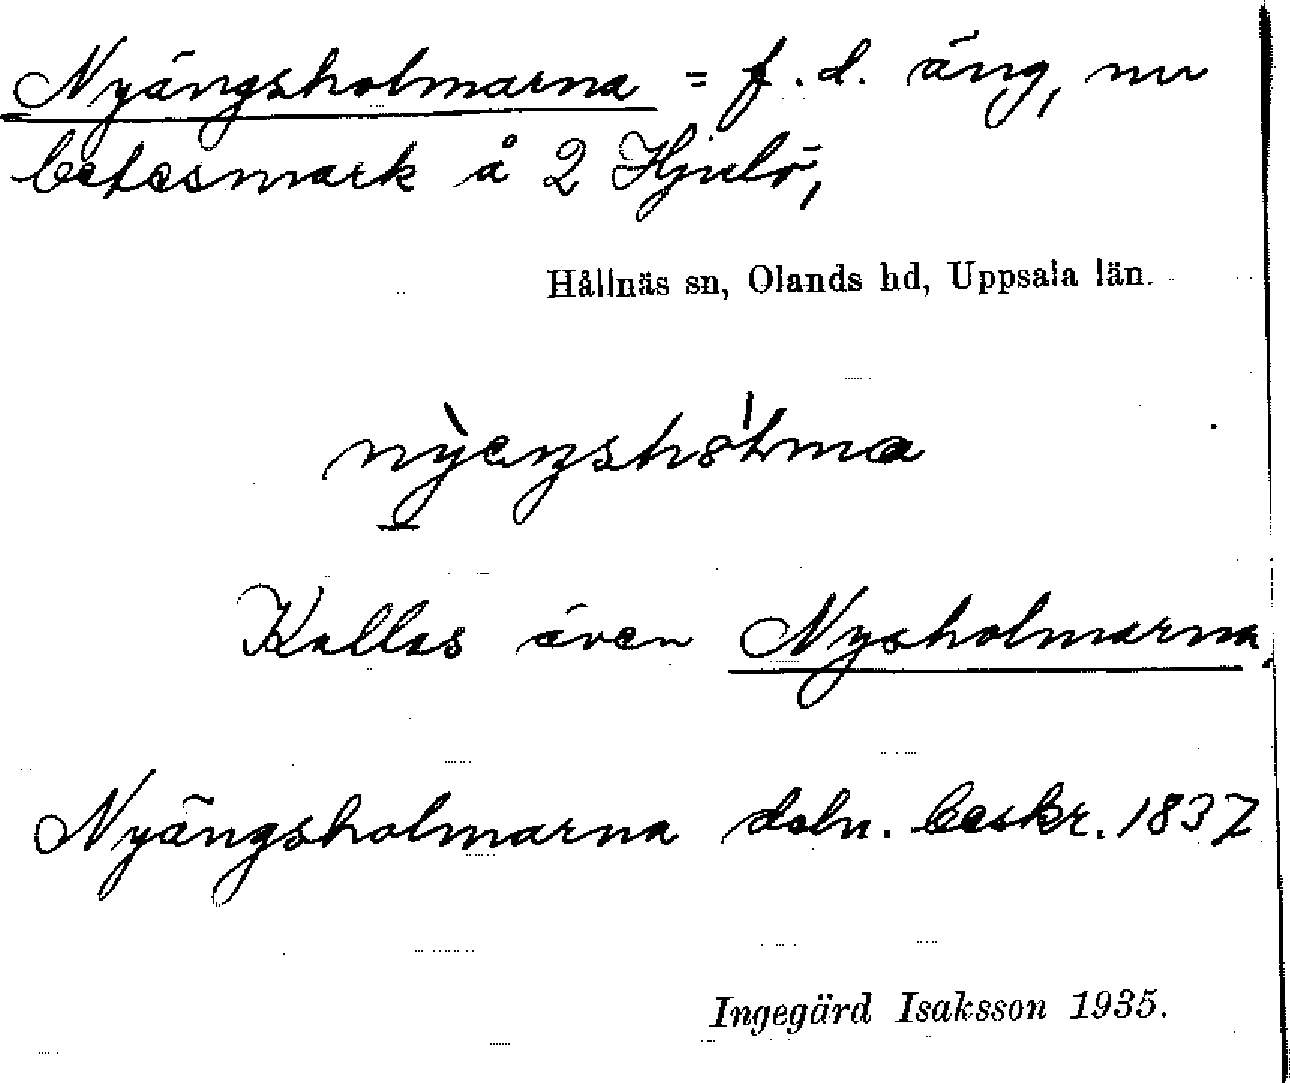 Nyängsholmarna = f.d. äng, nu
betesmark å 2 Hjulö,
Hållnäs sn, Olands hd, Uppsala län.
Kallas även Nysholmarna.
Nyängsholmarna deln. beskr. 1837
Ingegärd Isaksson 1935.